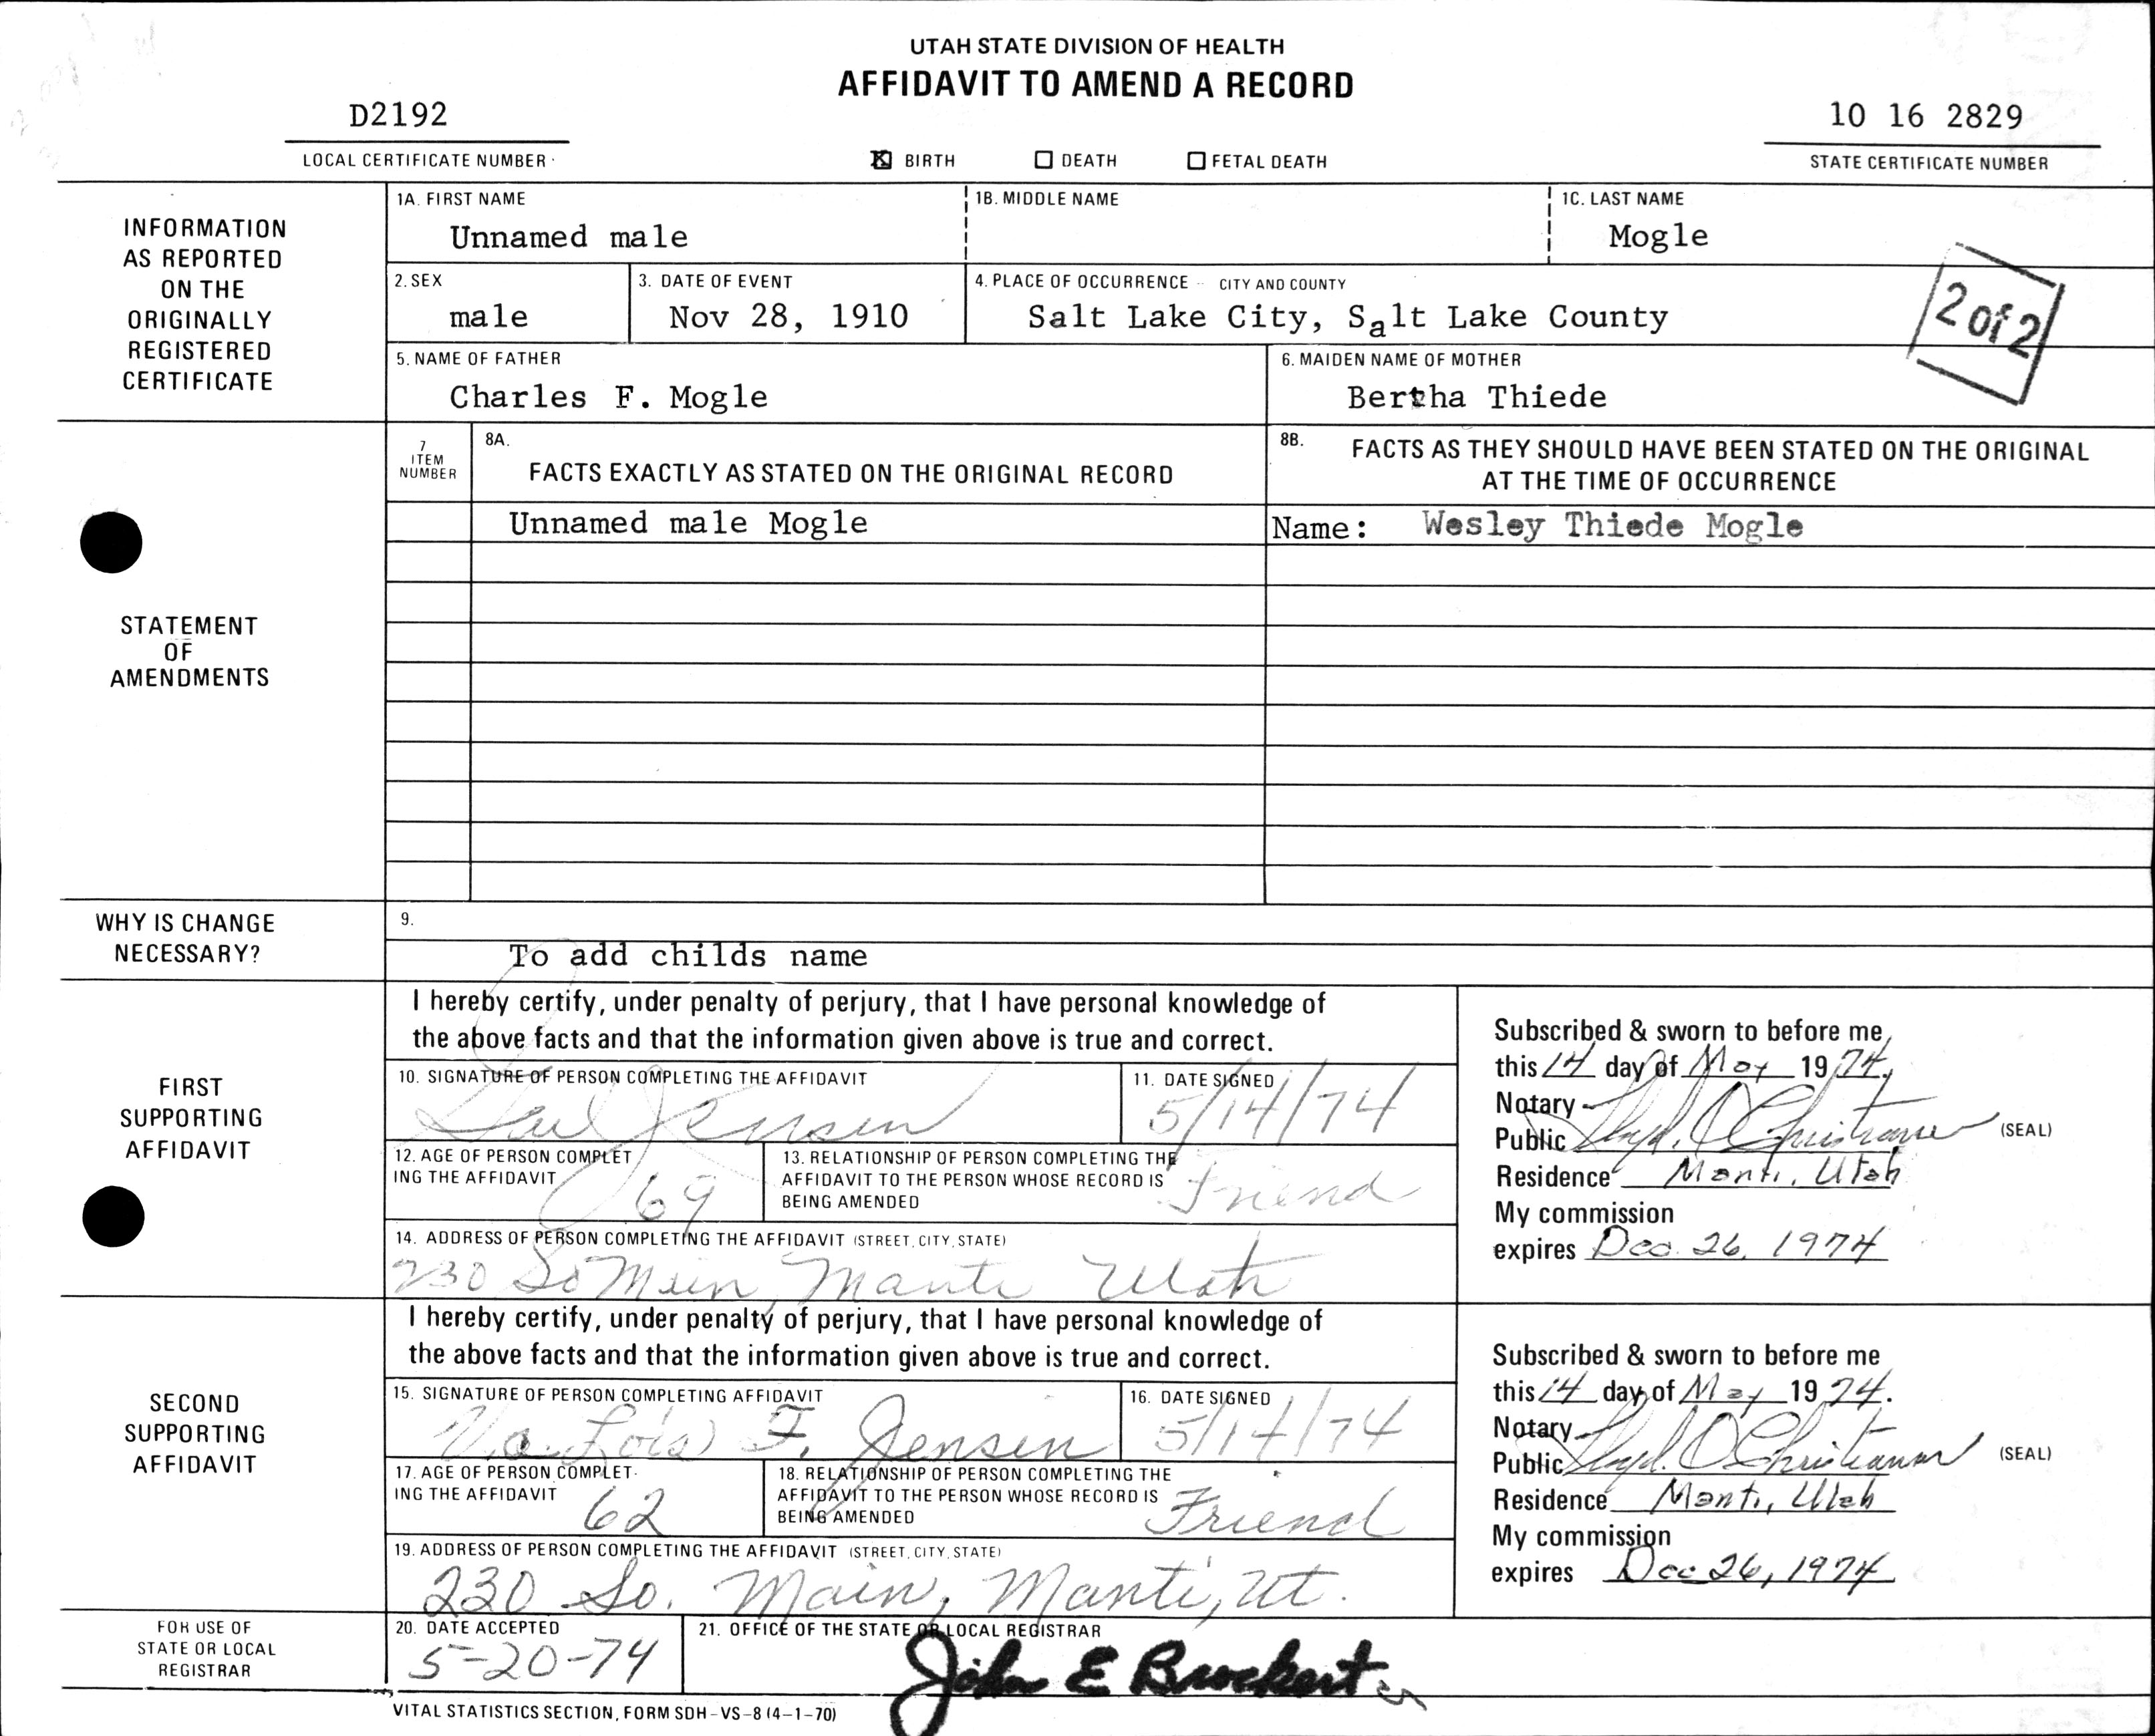 UTAH STATE DIVISION OF HEALTH
AFFIDAVIT TO AMEND A RECORD
D2192
10 16 2829
LOCAL CERTIFICATE NUMBER
BIRTH
DEATH
FETAL DEATH
STATE CERTIFICATE NUMBER
INFORMATION
AS REPORTED
ON THE
ORIGINALLY
REGISTERED
CERTIFICATE
1A. FIRST NAME
Unnamed male
1B. MIDDLE NAME
1C. LAST NAME
Mogle
2. SEX
male
3. DATE OF EVENT
Nov 28, 1910
4. PLACE OF OCCURRENCE - CITY AND COUNTY
Salt Lake City, Salt Lake County
2 of 2
5. NAME OF FATHER
Charles F. Mogle
6. MAIDEN NAME OF MOTHER
Bertha Thiede
STATEMENT
OF
AMENDMENTS
7
ITEM
NUMBER
8A.
FACTS EXACTLY AS STATED ON THE ORIGINAL RECORD
8B.
FACTS AS THEY SHOULD HAVE BEEN STATED ON THE ORIGINAL
AT THE TIME OF OCCURRENCE
Unnamed male Mogle
Name: Wesley Thiede Mogle
WHY IS CHANGE
NECESSARY?
9.
To add childs name
FIRST
SUPPORTING
AFFIDAVIT
I hereby certify, under penalty of perjury, that I have personal knowledge of
the above facts and that the information given above is true and correct.
10. SIGNATURE OF PERSON COMPLETING THE AFFIDAVIT
Jensen
11. DATE SIGNED
5/14/74
12. AGE OF PERSON COMPLET
ING THE AFFIDAVIT
69
13. RELATIONSHIP OF PERSON COMPLETING THE
AFFIDAVIT TO THE PERSON WHOSE RECORD IS
BEING AMENDED
Friend
14. ADDRESS OF PERSON COMPLETING THE AFFIDAVIT (STREET, CITY, STATE)
230 So Main, Manti Utah
Subscribed & sworn to before me,
this 14 day of May 1974.
Notary
Public Christiansen (SEAL)
Residence Manti, Utah
My commission
expires Dec. 26, 1974
SECOND
SUPPORTING
AFFIDAVIT
I hereby certify, under penalty of perjury, that I have personal knowledge of
the above facts and that the information given above is true and correct.
15. SIGNATURE OF PERSON COMPLETING AFFIDAVIT
Lois F. Jensen
16. DATE SIGNED
5/14/74
17. AGE OF PERSON COMPLET-
ING THE AFFIDAVIT
62
18. RELATIONSHIP OF PERSON COMPLETING THE
AFFIDAVIT TO THE PERSON WHOSE RECORD IS
BEING AMENDED
Friend
19. ADDRESS OF PERSON COMPLETING THE AFFIDAVIT (STREET, CITY, STATE)
230 So. Main, Manti, Ut.
Subscribed & sworn to before me
this 14 day of May 1974.
Notary
Public Christiansen (SEAL)
Residence Manti, Utah
My commission
expires Dec 26, 1974
FOR USE OF
STATE OR LOCAL
REGISTRAR
20. DATE ACCEPTED
5-20-74
21. OFFICE OF THE STATE OR LOCAL REGISTRAR
John E Brockert
VITAL STATISTICS SECTION, FORM SDH-VS-8 (4-1-70)